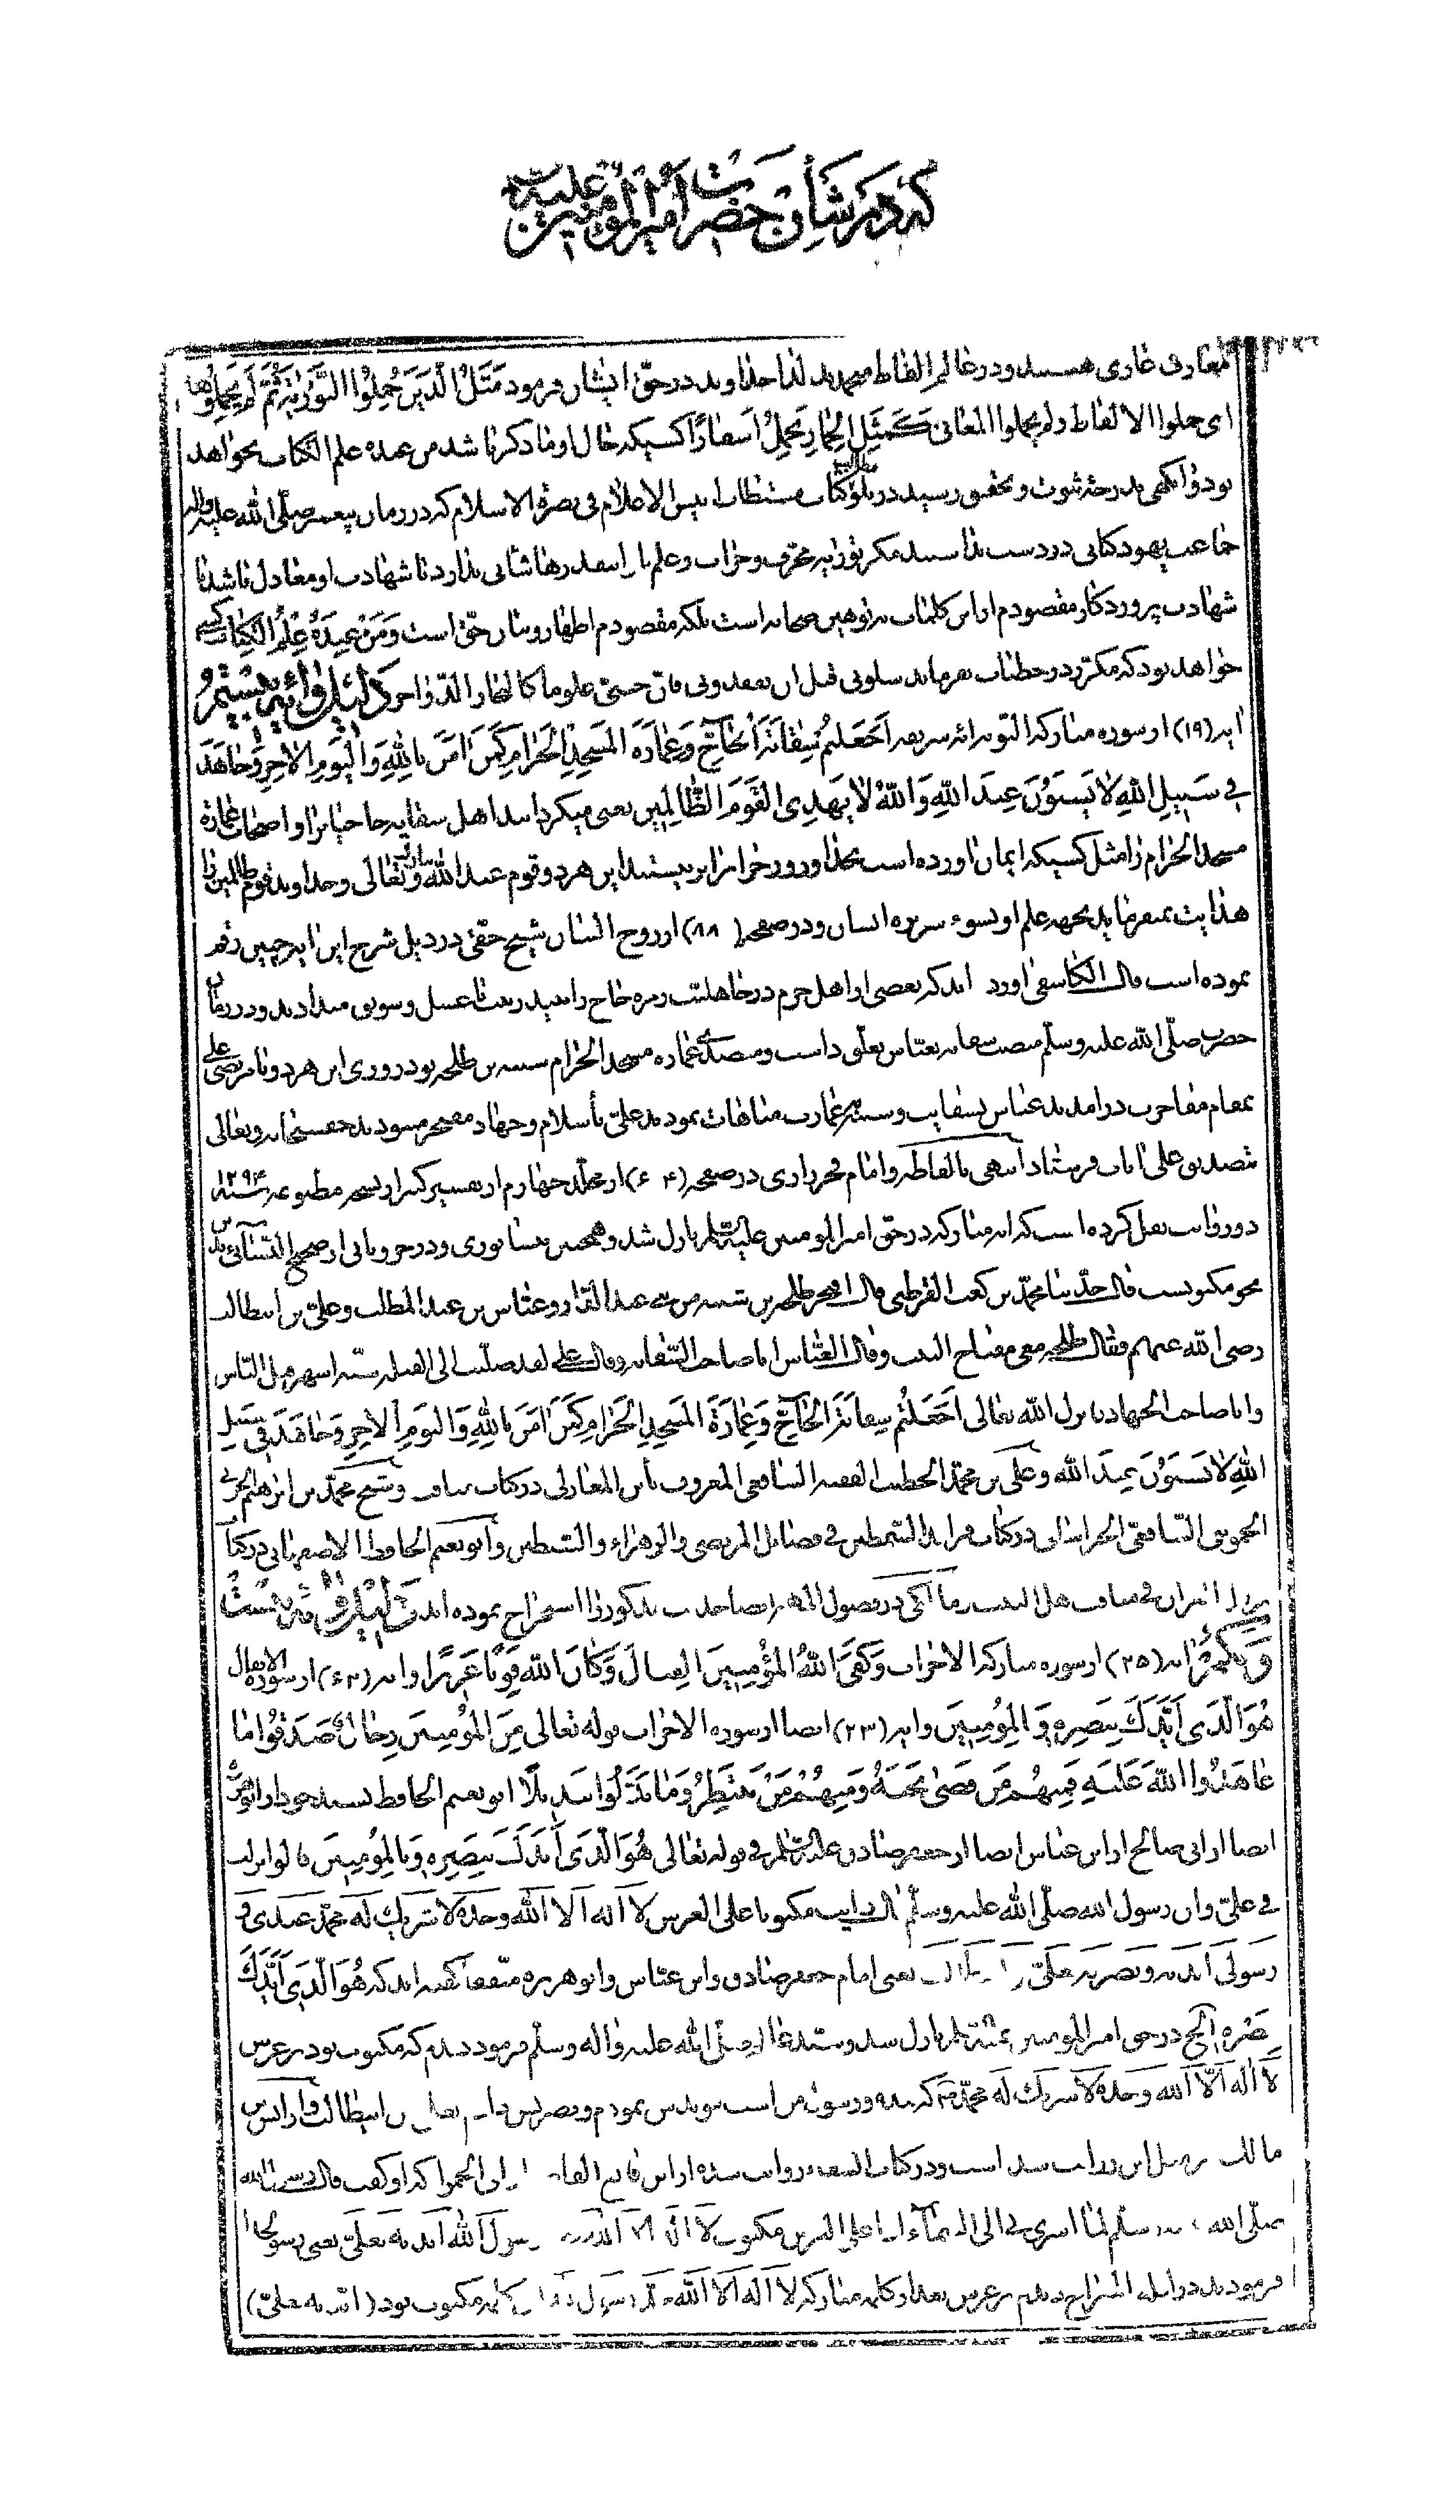 که در شأن حضرت امیرالمؤمنین علیه
معارف عاری هستند و در عالم الفاظ لذا خداوند در حق ایشان فرمود مَثَلُ الَّذینَ حُمِّلُوا التَّوْرٰیةَ ثُمَّ لَمْ یَحْمِلُوهٰا
ای حملوا الالفاظ ولم یحملوا المعانی کَمَثَلِ الْحِمٰارِ یَحْمِلُ اَسْفٰارًا کسیکه حال او ما ذکر باشد من عنده علم الکتاب نخواهد
بود وانگهی بدرجهٔ ثبوت و تحقیق رسید در کتاب مستطاب انیس الاعلام فی نصرة الاسلام که در زمان پیغمبر صلّی الله علیه واله
جماعت یهود کتابی در دست نداشتند مگر توریه محرّف وخراب وعلم باین اسفار شأنی ندارد تا شهادت او معادل باشد با
شهادت پروردگار مقصودم از این کلمات نه توهین صحابه است بلکه مقصودم اظهار و بیان حق است وَمَنْ عِنْدَهُ عِلْمُ الْکِتٰابِ کسی
خواهد بود که مکرّر در خطبات بفرماید سلونی قبل ان تفقدونی فان جنبیّ علوما کالبحار الذواخر دلیل و آیه بیستم
آیه (۱۹) از سوره مبارکه التوبه اَجَعَلْتُمْ سِقٰایَةَ الْحٰاجِّ وَعِمٰارَةَ الْمَسْجِدِ الْحَرٰامِ کَمَنْ اٰمَنَ بِاللهِ وَالْیَوْمِ الْاٰخِرِ وَجٰاهَدَ
فی سَبیلِ اللهِ لٰا یَسْتَوُنَ عِنْدَ اللهِ وَاللهُ لٰا یَهْدِی الْقَوْمَ الظّٰالِمینَ یعنی میگردانید اهل سقایه حاجیانرا و اصحاب عمارة
مسجد الحرام را مثل کسیکه ایمان اورده است بخدا و روز جزا برابر نیستند این هر دو قوم عند الله تعالی وخداوند قوم ظالمین را
هدایت نمیفرماید بجهة علم او بسوء سریرهٔ انسان ودر صفحه (۸۸۱) از روح البیان شیخ حقی در ذیل شرح این آیه چنین رقم
نموده است قال الکاشفی آورده‌اند که بعضی از اهل حرم در جاهلیت زمره حاج را نبیذ زبیب با عسل وسویق میدادند و در زمان
حضرت صلّی الله علیه وسلّم منصب سقایه بعباس تعلّق داشت ومتصدی عماره مسجد الحرام شیبه بن طلحه بود روزی این هر دو با مرتضی علی
بمقام مفاخرت درآمدند عباس بسقایت وشیبه بعمارت مباهات نمودند علیّ بأسلام وجهاد مفتخر میبودند حق سبحانه وتعالی
بتصدیق علی آیات فرستاد انتهی بالفاظه وامام فخر رازی در صفحه (۶۰۴) از مجلّد چهارم از تفسیر کبیر از نسخه مطبوعه سنه ۱۲۹۴
دو روایت نقل کرده است که آیه مبارکه در حق امیرالمؤمنین علیه السلام نازل شد و همچنین نیشابوری ودر جزو ثانی از صحیح النسائی بدین
نحو مکتوبست قال حدّثنا محمّد بن کعب القرظی قال افتخر طلحه بن شیبه من بنی عبد الدار وعبّاس بن عبد المطلب وعلیّ بن ابیطالب
رضی الله عنهم فقال طلحه معی مفتاح البیت وقال العبّاس انا صاحب السقایه وقال علی لقد صلّیت الی القبله ستة اشهر قبل النّاس
وانا صاحب الجهاد فانزل الله تعالی اَجَعَلْتُمْ سِقٰایَةَ الْحٰاجِّ وَعِمٰارَةَ الْمَسْجِدِ الْحَرٰامِ کَمَنْ اٰمَنَ بِاللهِ وَالْیَوْمِ الْاٰخِرِ وَجٰاهَدَ فی سَبیلِ
اللهِ لٰا یَسْتَوُنَ عِنْدَ الله وعلی بن محمّد الخطیب الفقیه الشافعی المعروف بأبن المغازلی در کتاب مناقب وشیخ محمّد بن ابراهیم
الحموینی الشافعی الخراسانی در کتاب فراید السّمطین فی فضایل المرتضی والزهراء والسّبطین وابونعیم الحافظ الاصفهانی در کتاب
نزول القران فی مناقب اهل البیت ومالکی در فصول المهمه ایضا حدیث مذکور را استخراج نموده‌اند دلیل و آیه بیست
ویکم آیه (۲۵) از سوره مبارکه الاحزاب وَکَفَی اللهُ الْمُؤْمِنینَ الْقِتٰالَ وَکٰانَ اللهُ قَوِیًّا عَزیزًا وآیه (۶۳) از سوره الانفال
هُوَ الَّذی اَیَّدَکَ بِنَصْرِهِ وَبِالْمُؤْمِنینَ وآیه (۲۳) ایضا از سوره الاحزاب قوله تعالی مِنَ الْمُؤْمِنینَ رِجٰالٌ صَدَقُوا مٰا
عٰاهَدُوا اللهَ عَلَیْهِ فَمِنْهُمْ مَنْ قَضٰی نَحْبَهُ وَمِنْهُمْ مَنْ یَنْتَظِرُ وَمٰا بَدَّلُوا تَبْدیلًا ابونعیم الحافظ بسند خود از ابوهریره
ایضا از ابی صالح از ابن عباس ایضا از جعفر صادق علیه السلام فی قوله تعالی هُوَ الَّذی اَیَّدَکَ بِنَصْرِهِ وَبِالْمُؤْمِنینَ قالوا نزلت
فی علیّ وان رسول الله صلّی الله علیه وسلّم قال رایت مکتوبا علی العرش لا اله الا الله وحده لا شریک له محمّد عبدی و
رسولی ایدته ونصرته بعلیّ یعنی امام جعفر صادق وابن عبّاس وابوهریره متفقا گفته‌اند که هُوَ الَّذی اَیَّدَکَ
بِنَصْرِه الخ در حق امیرالمؤمنین علیه السلام نازل شد وسید عالم صلّی الله علیه واله وسلّم فرمود دیدم که مکتوب بود بر عرش
لا اله الا الله وحده لا شریک له محمّد که بنده ورسول من است تأییدش نمودم ونصرتش دادم بعلی بن ابیطالب واز انس بن
مالک مثل این روایت شده است ودر کتاب الشفاء روایت شده از ابن قانع القاضی از ابی الحمرا که او گفت قال رسول الله
صلّی الله علیه وسلّم لمّا اسری بی الی السّماء اذا علی العرش مکتوب لا اله الا الله رسول الله ایدته بعلیّ یعنی رسولخدا
فرمودند در لیلة المعراج دیدم بر عرش بعد از کلمه مبارکه لا اله الا الله محمّد رسول الله این کلمه مکتوب بود (ایدته بعلیّ)